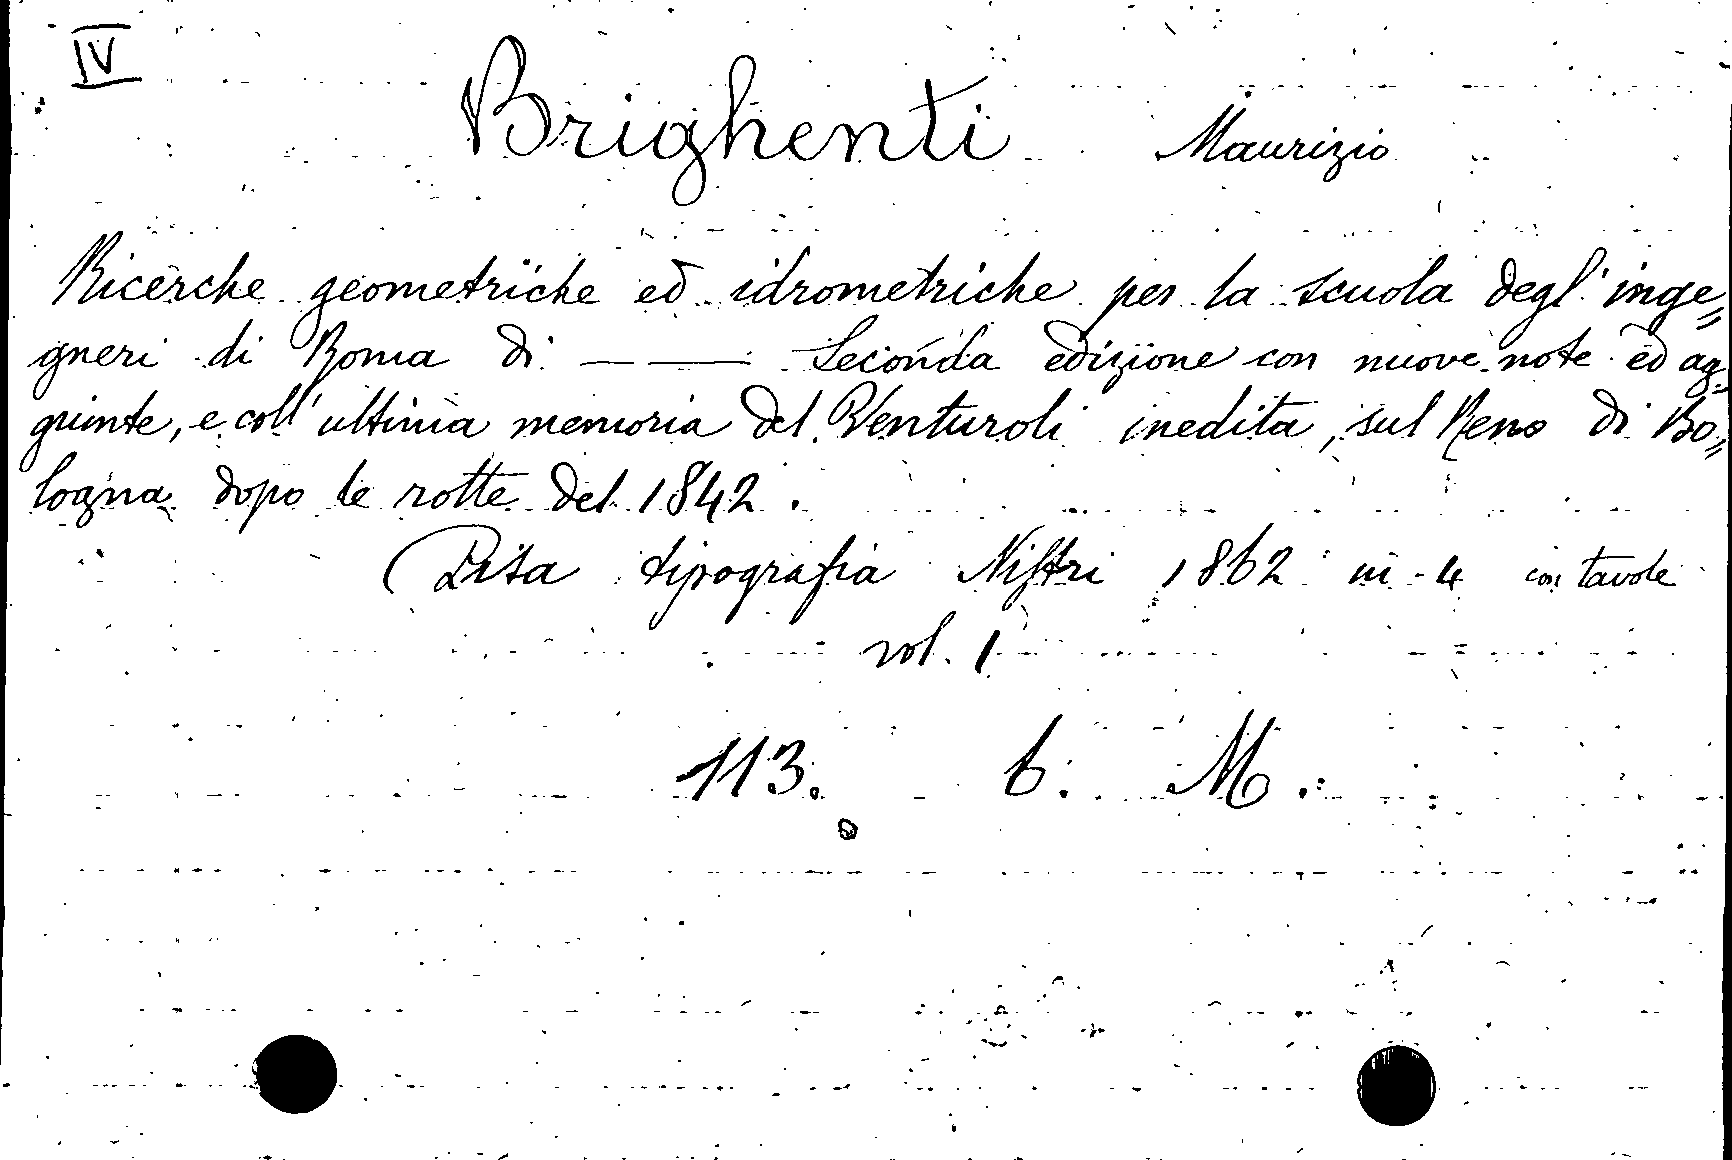 IV
Brighenti Maurizio
Ricerche geometriche ed idrometriche per la scuola degl' inge„
gneri di Roma di — — Seconda edizione con nuove note ed ag„
giunte, e coll' ultima memoria del Venturoli inedita, sul Reno di Bo„
logna dopo le rotte del 1842.
(Pisa tipografia Nistri 1862 in-4 con tavole
vol. 1
113. 6. M.